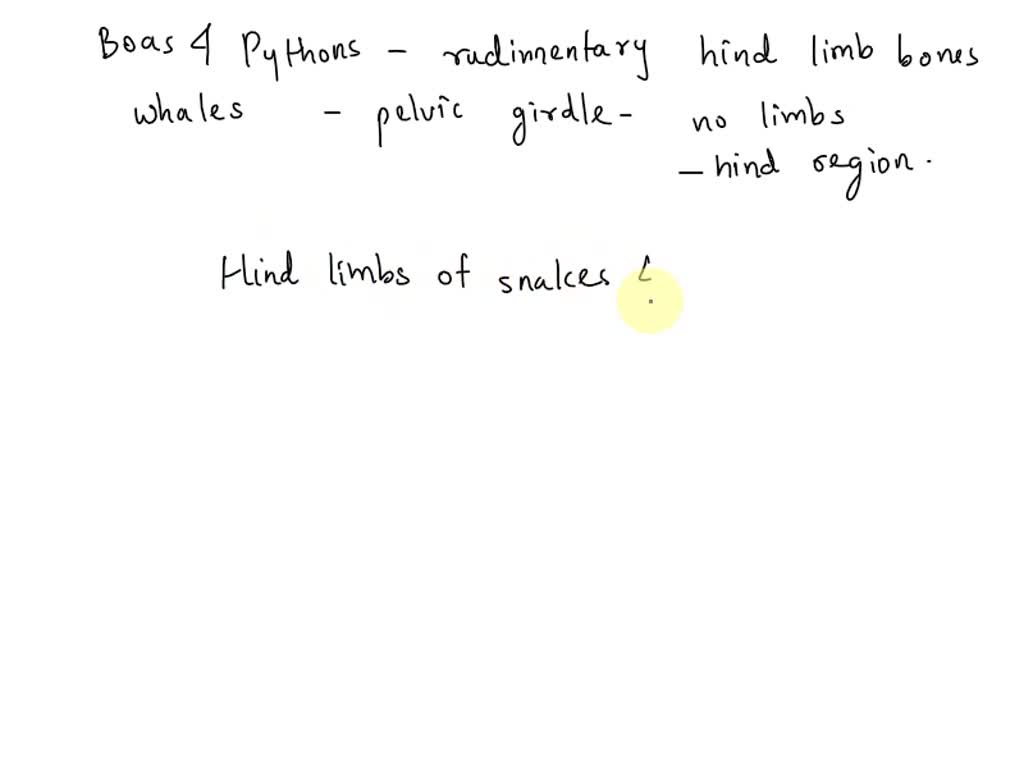 Boas & Pythons - rudimentary hind limb bones
whales - pelvic girdle - no limbs
- hind region.
Hind limbs of snakes